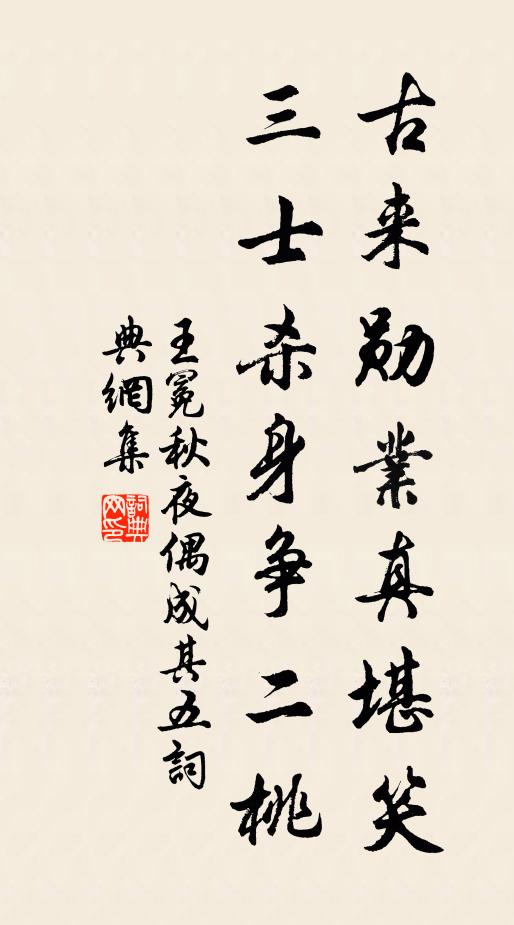 古来勋業真堪笑
三士杀身争二桃
王冕秋夜偶成其五詞
典網集
詞典網印